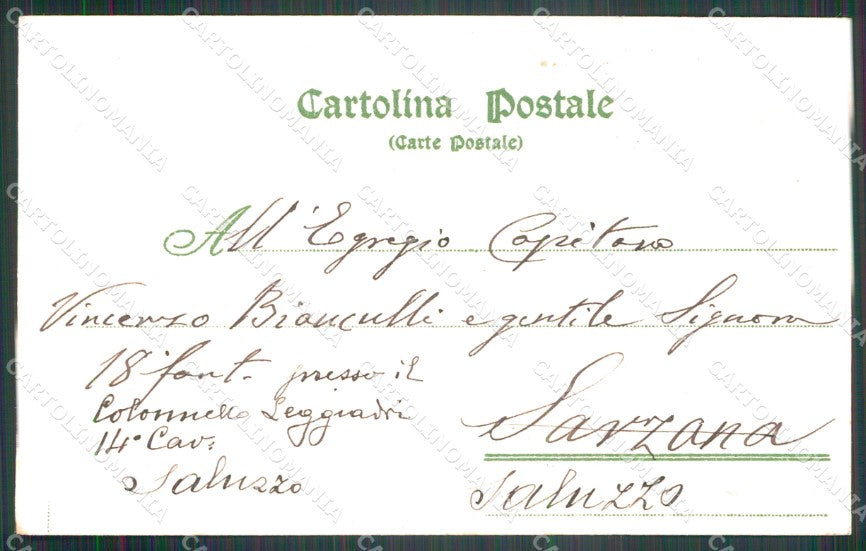 Cartolina Postale
(Carte Postale)
All'Egregio Capitano
Vincenzo Bianculli e gentile Signora
18° fant. presso il
Colonnello Leggiadri
14° Cav.
Saluzzo
Sarzana
Saluzzo
CARTOLINOMANIA